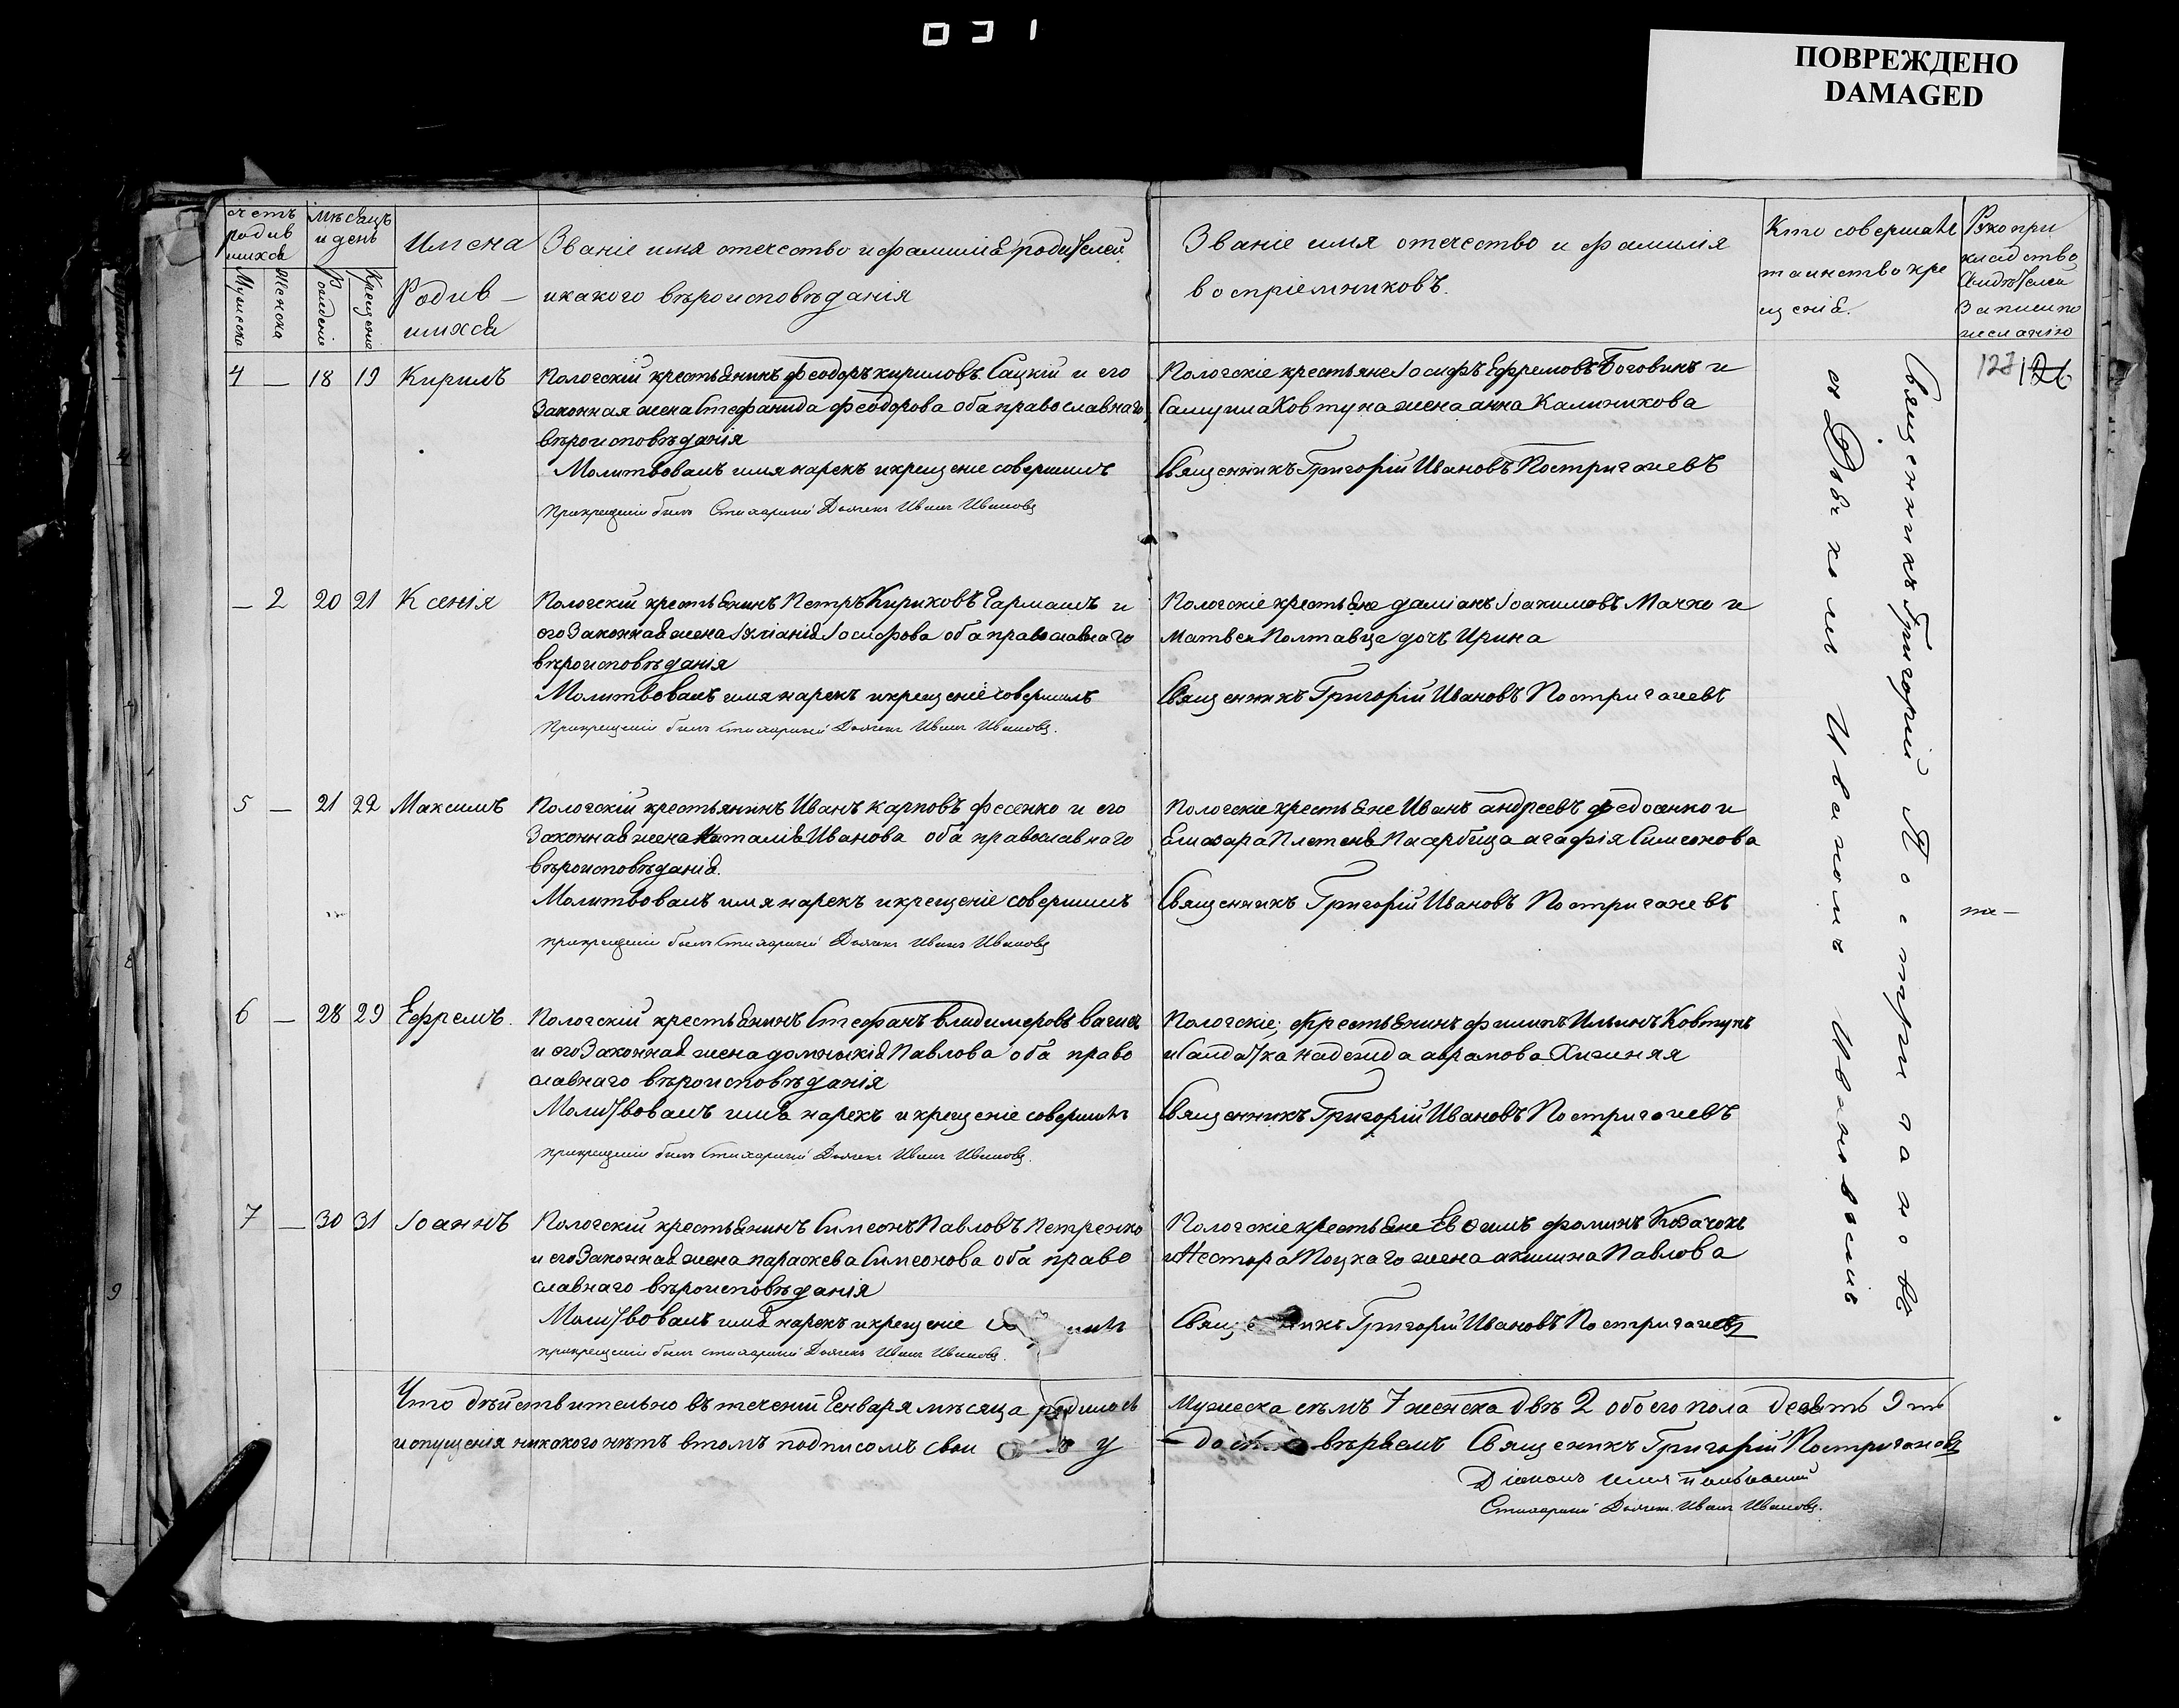 031
ПОВРЕЖДЕНО
DAMAGED
Счетъ родив шихся
Мѣсяцъ и день
Мужеска
Женска
Рожденіе
Крещеніе
Имена Родив– шихся
Званіе имя отечество и фамилія родителей
и какого вѣроисповѣданія
Званіе имя отечество и фамилія
воспріемниковъ.
Кто совершалъ
таинство кре
щенія.
Руко при
кладство
свидѣтелей
записи по
желанію
4 — 18 19 Кирилъ
Пологскій крестьянинъ Феодоръ Кириловъ Сацкій и его
законная жена Стефанида Феодорова оба православнаго
вѣроисповѣданія
Молитвовалъ имя нарекъ и крещеніе совершилъ
При крещеніи былъ Стихарный Дьячекъ Иванъ Ивановъ
Пологскіе крестьяне Іосифъ Ефремовъ Боговинъ и
Самуила Ковтуна жена анна Калиникова
Священникъ Григорій Ивановъ Постригачевъ
127 126
— 2 20 21 Ксенія
Пологскій крестьянинъ Петръ Кириковъ Гармашъ и
его законная жена Іуліанія Іосифова оба православнаго
вѣроисповѣданія
Молитвовалъ имя нарекъ и крещеніе совершилъ
При крещеніи былъ Стихарный Дьячекъ Иванъ Ивановъ.
Пологскіе крестьяне даміанъ Іоакимовъ Мачко и
Матвея Полтавца дочь Ирина
Священникъ Григорій Ивановъ Постригачевъ
5 — 21 22 Максимъ
Пологскій крестьянинъ Иванъ карповъ фесенко и его
законная жена Наталія Иванова оба православнаго
вѣроисповѣданія.
Молитвовалъ имя нарекъ и крещеніе совершилъ
при крещеніи былъ Стихарный Дьячекъ Иванъ Ивановъ
Пологскіе крестьяне Иванъ андреевъ федосенко и
Елиазара Плетеня Пасербица агафія Симеонова
Священникъ Григорій Ивановъ Постригачевъ
6 — 28 29 Ефремъ.
Пологскій крестьянинъ Стефанъ владимеровъ
и его законная жена домникія Павлова оба право
славнаго вѣроисповѣданія
Молитвовалъ имя нарекъ и крещеніе совершилъ
при крещеніи былъ Стихарный Дьячекъ Иванъ Ивановъ.
Пологскіе; Крестьянинъ филипъ Ильинъ Ковтунъ
и Салдатка надежда аврамова
Священникъ Григорій Ивановъ Постригачевъ
7 — 30 31 Іоаннъ
Пологскій крестьянинъ Симеонъ Павловъ Петренко
и его законная жена параскева Симеонова оба право
славнаго вѣроисповѣданія
Молитвовалъ имя нарекъ и крещеніе
при крещеніи былъ стихарный Дьячекъ Иванъ Ивановъ.
Пологскіе крестьяне Евфимъ фоминъ Козачокъ
и Нестора Поцкаго жена акилина Павлова
Священникъ Григорій Ивановъ Постригачевъ
Священникъ Григорій Постригачовъ
съ Дьячкомъ Иваномъ Ивановымъ
Что дѣйствительно въ теченіи Генваря мѣсяца родилось
Мужеска семъ 7 женска двѣ 2 обоего пола девять 9ть
и опущенія никакого нѣтъ втомъ подписомъ свои
вѣряемъ Священикъ Григорій Постригачовъ
Діаконъ
Стихарный Дьячекъ Иванъ Ивановъ.